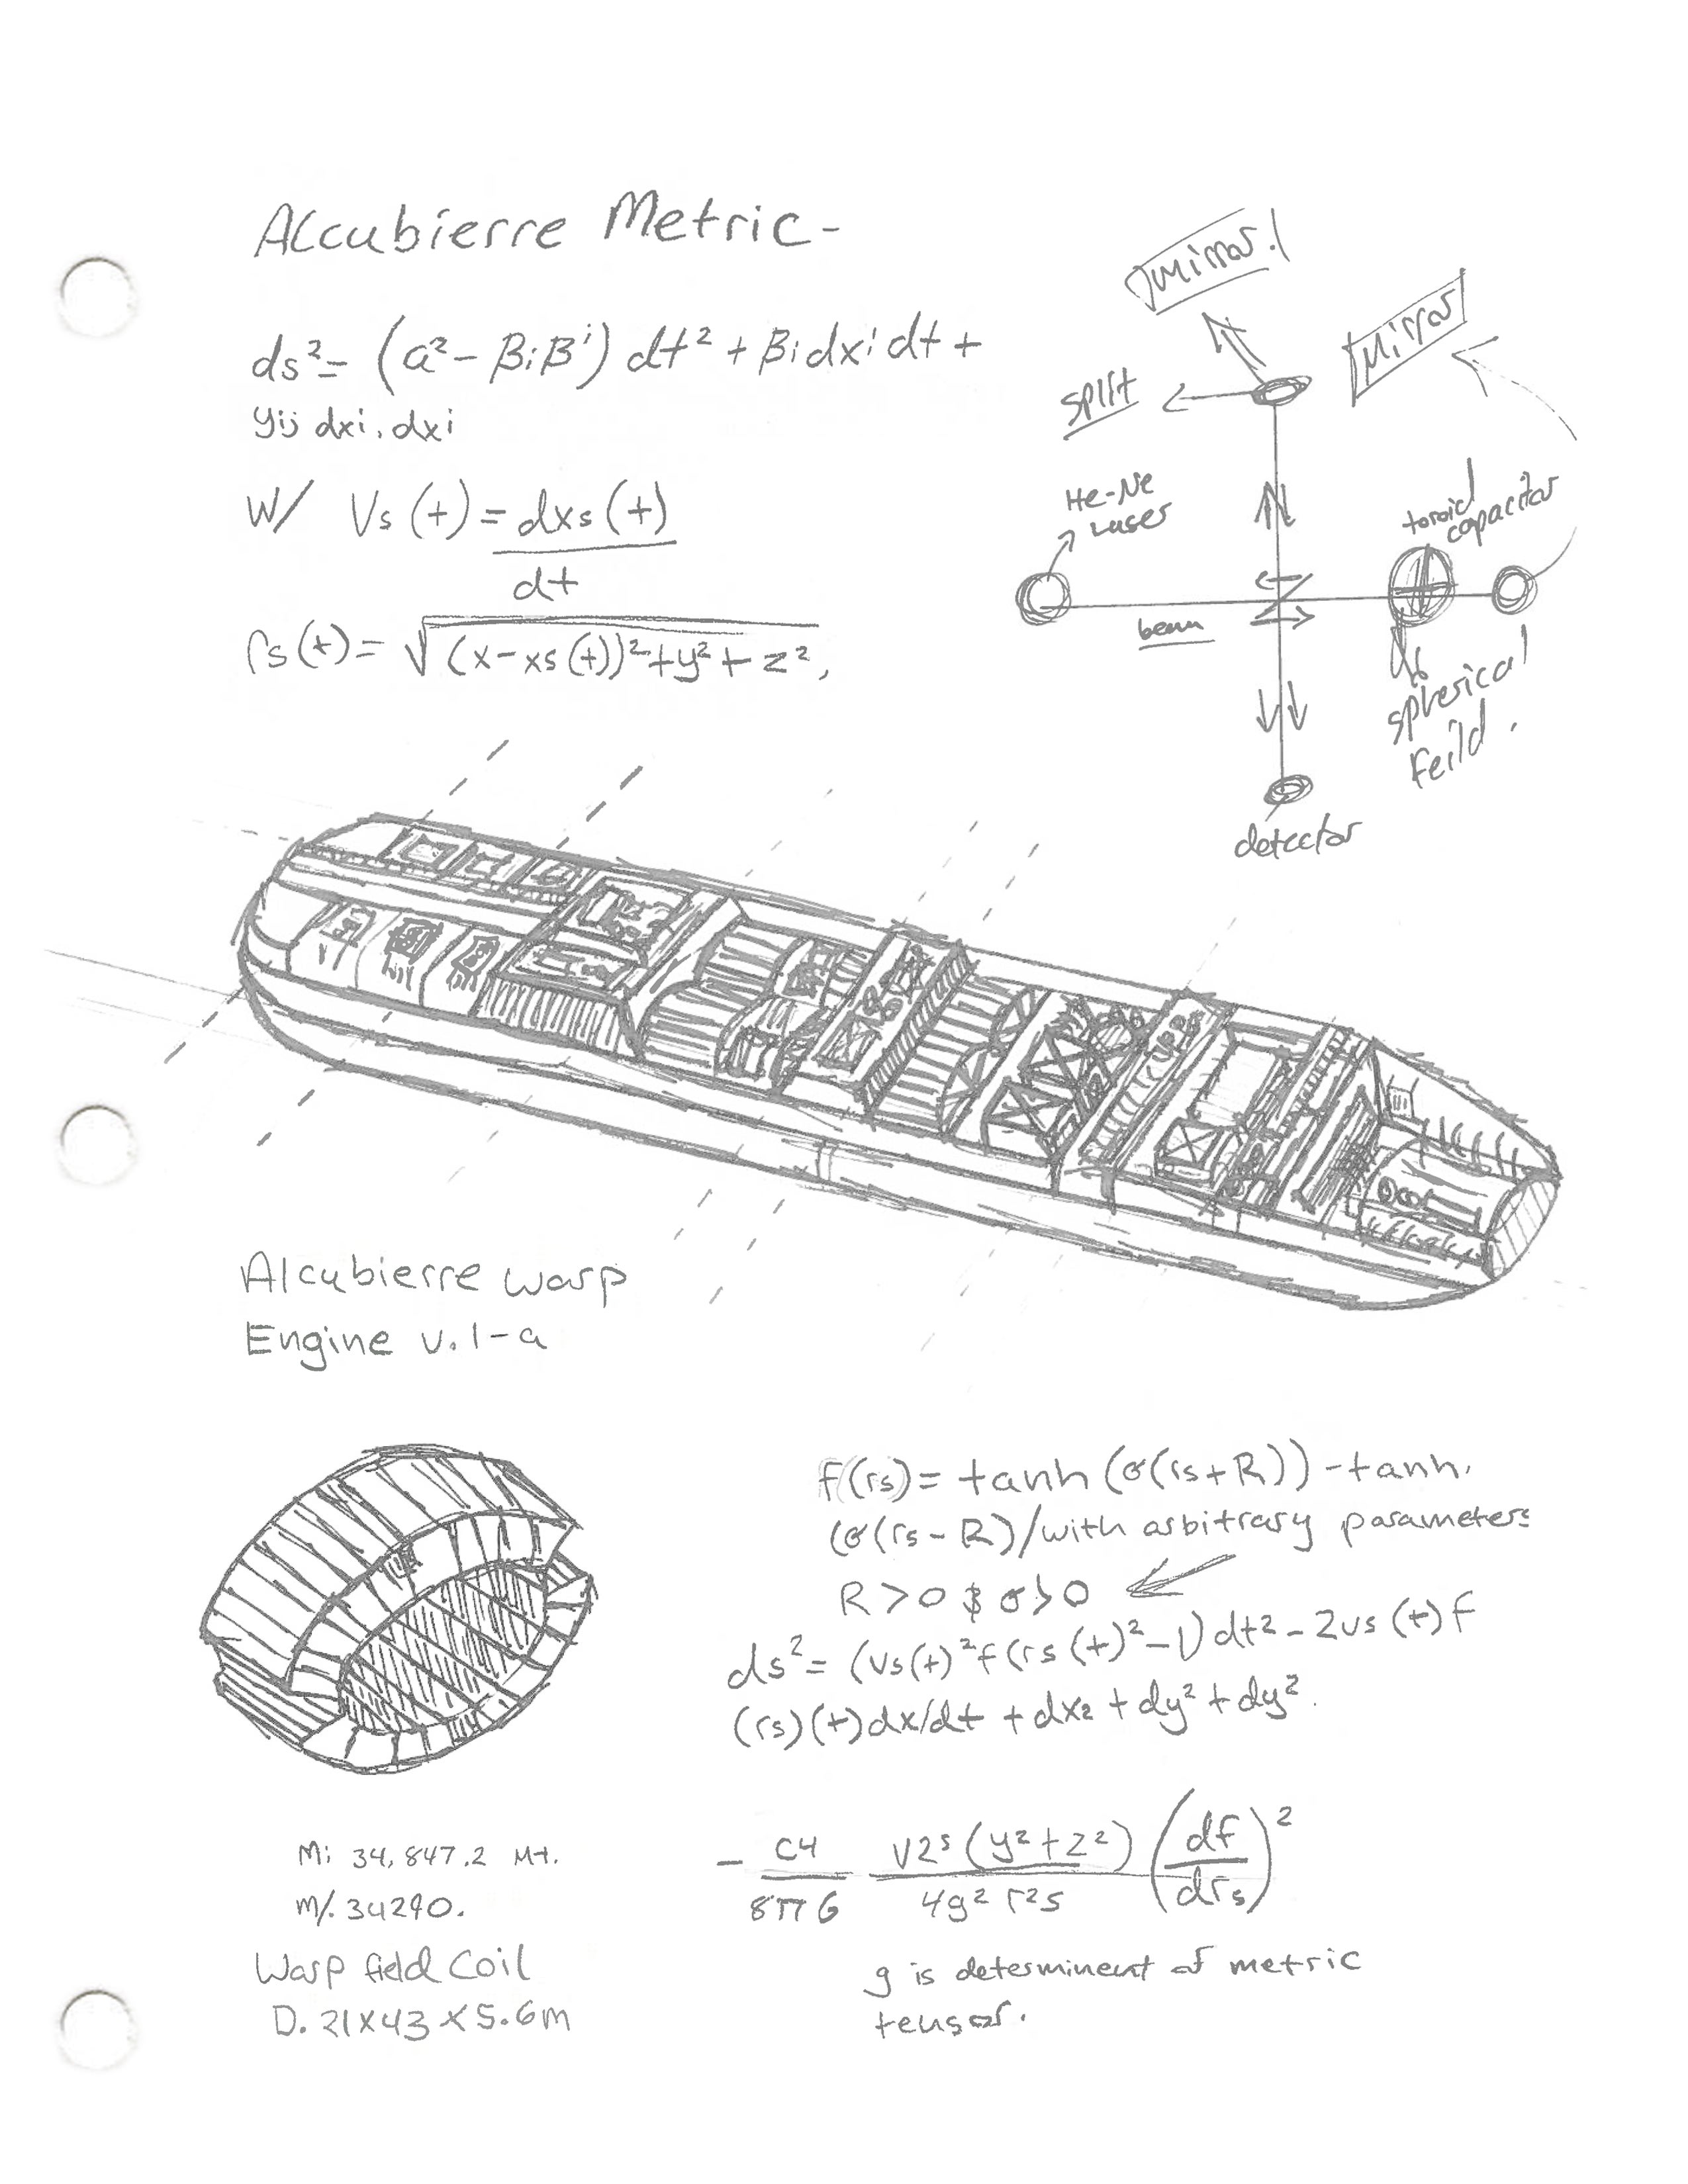 Alcubierre Metric-
ds²= (a²- βiβⁱ) dt² + βidxⁱdt +
yij dxi. dxi
w/ Vs(t) = dxs(t)
dt
rs(t)= √(x-xs(t))²+y²+z²,
Mirror.
Mirror
split
He-Ne
Laser
toroid
capacitor
beam
spherical
Feild.
detector
Alcubierre warp
Engine v.1-a
f(rs)= tanh(σ(rs+R))-tanh.
(σ(rs-R)/with arbitrary parameters
R>0 $ σ>0
ds²= (vs(t)²f(rs(t)²-1)dt²-2vs(t)f
(rs)(t)dx/dt +dx2 +dy²+dy².
- C4 V2s(y²+z²) (df)²
8πG 4g² r2s drs
g is determinent of metric
tensor.
M: 34,847.2 Mt.
m/. 34290.
Warp field Coil
D. 21x43x5.6m